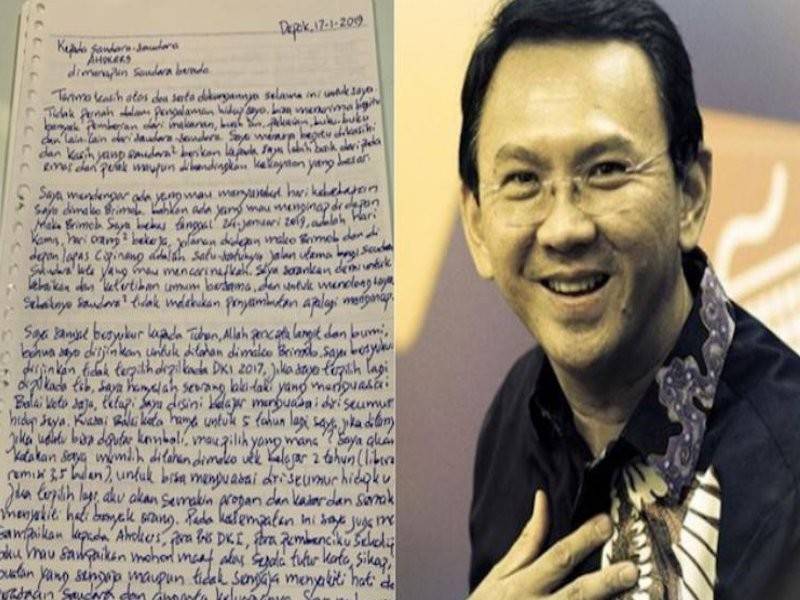 Depok, 17-1-2019
Kepada Saudara-saudara
AHOKERS
dimanapun Saudara berada
Terima kasih atas doa serta dukungannya selama ini untuk saya.
Tidak pernah dalam pengalaman hidup saya, bisa menerima begitu
banyak pemberian dari makanan, buah an, pakaian, buku-buku
dan lain-lain dari saudara-saudara. Saya merasa begitu dikasihi
dan kasih yang saudara² berikan kepada saya lebih baik dari pada
emas dan perak maupun dibandingkan kekayaan yang besar.
Saya mendengar ada yang mau menyambut hari kebebasan
saya dimako Brimob, bahkan ada yang mau menginap di depan
Mako Brimob. Saya bebas tanggal 24 januari 2019, adalah hari
Kamis, hari orang² bekerja, jalanan didepan mako Brimob dan di
depan lapas Cipinang adalah satu-satunya jalan utama bagi saudara
Saudara kita yang mau mencari nafkah. Saya sarankan demi untuk
kebaikan dan ketertiban umum bersama, dan untuk menolong saya,
Sebaiknya Saudara² tidak melakukan penyambutan apalagi menginap.
Saya sangat bersyukur kepada Tuhan, Allah pencipta langit dan bumi,
bahwa saya diijinkan untuk ditahan dimako Brimob. Saya bersyukur
diijinkan tidak terpilih dipilkada DKI 2017. Jika saya terpilih lagi
dipilkada tsb, saya hanyalah seorang laki-laki yang menguasai
Balai kota saja, tetapi saya disini belajar menguasai diri seumur
hidup saya. Kuasai Balai kota hanya untuk 5 tahun lagi saja, jika ditany
jika waktu bisa diputar kembali, mau pilih yang mana? Saya akan
katakan saya memilih ditahan dimako utk belajar 2 tahun (libura
remisi 3,5 bulan), untuk bisa menguasai diri seumur hidupku
Jika terpilih lagi, aku akan semakin arogan dan kasar dan semak
menyakiti hati banyak orang. Pada kesempatan ini saya juga m
Sampaikan kepada Ahokers, para PNS DKI, para pembenciku sekalip
aku mau sampaikan mohon maaf atas segala tutur kata, sikap,
buatan yang sengaja maupun tidak sengaja menyakiti hati d
Saudara dan anggota keluarganya